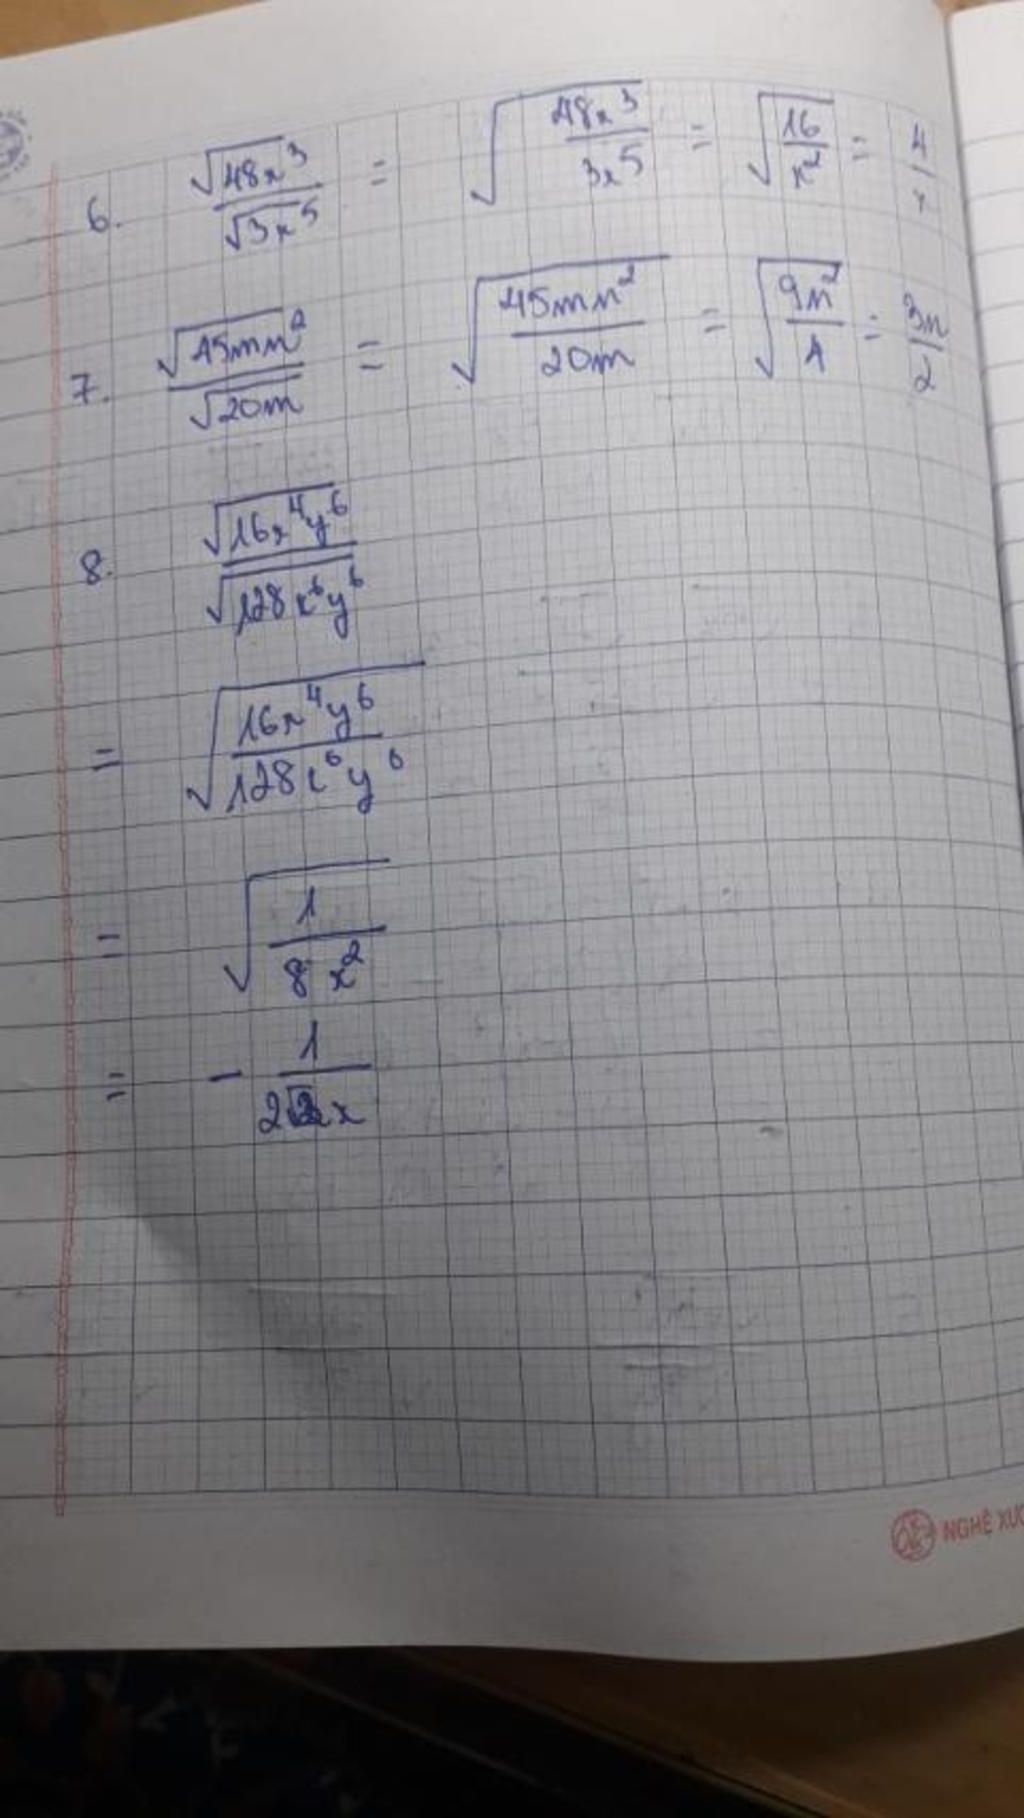 6. √48x³ / √3x⁵ = √(48x³ / 3x⁵) = √(16 / x²) = 4 / x
7. √45mn² / √20m = √(45mn² / 20m) = √(9n² / 4) = 3n / 2
8. √16x⁴y⁶ / √128x⁶y⁶
= √(16x⁴y⁶ / 128x⁶y⁶)
= √(1 / 8x²)
= - 1 / 2√2x
NGHÊ XUÂ